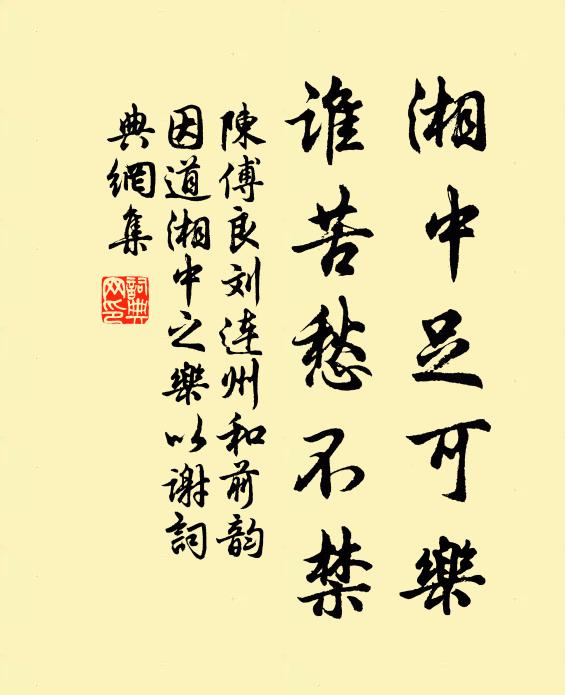 湘中足可樂
誰苦愁不禁
陳傅良刘連州和前韵
因道湘中之樂以謝詞
典網集
詞典網印